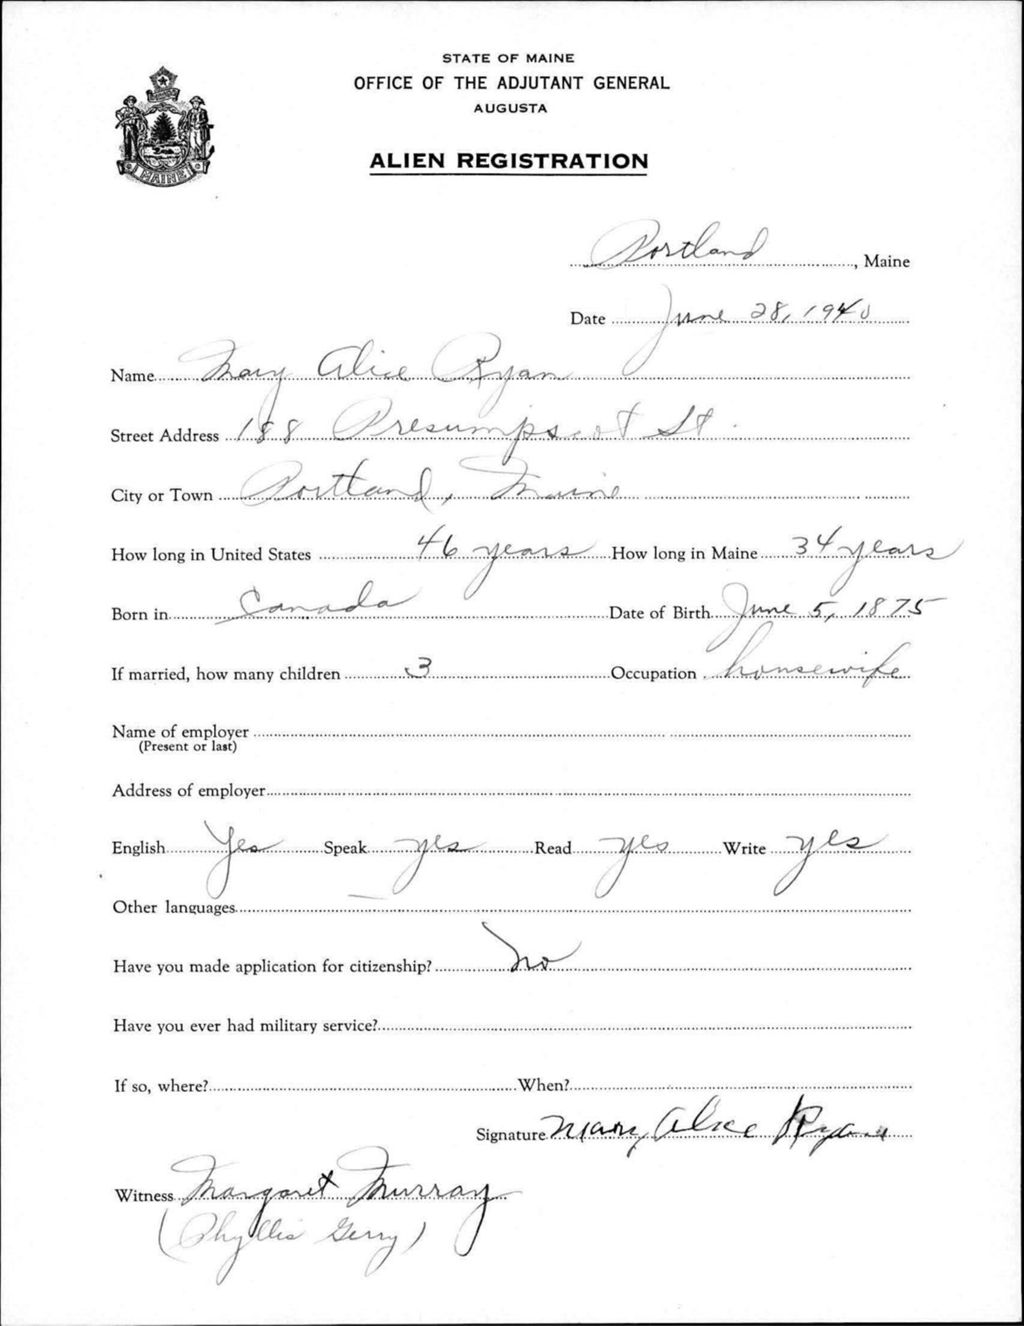 STATE OF MAINE
OFFICE OF THE ADJUTANT GENERAL
AUGUSTA
ALIEN REGISTRATION
MAINE
Portland, Maine
Date June 28, 1940
Name Mary Alice Ryan
Street Address 188 Presumpscot St.
City or Town Portland, Maine
How long in United States 46 years How long in Maine 34 years
Born in Canada Date of Birth June 5, 1875
If married, how many children 3 Occupation housewife
Name of employer
(Present or last)
Address of employer
English Yes Speak yes Read yes Write yes
Other languages
Have you made application for citizenship? No
Have you ever had military service?
If so, where? When?
Signature Mary Alice Ryan
Witness Margaret Murray
(Phyllis Gerry)